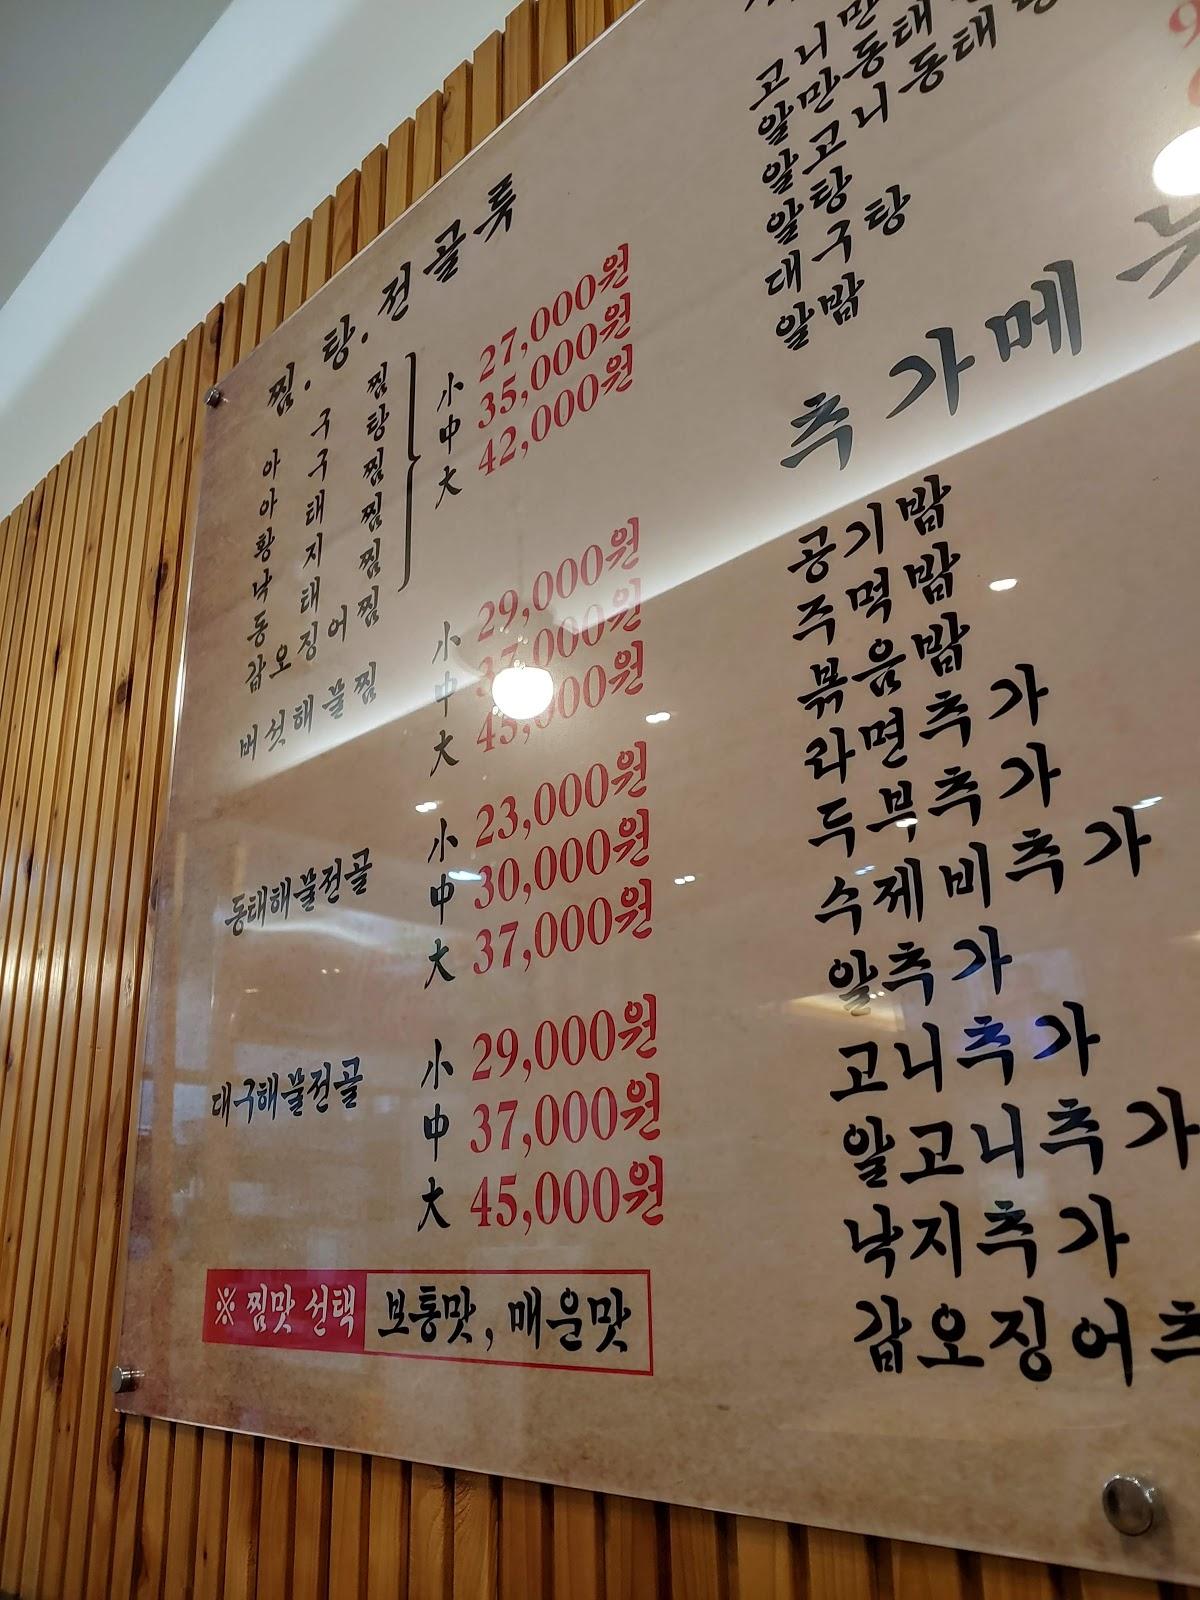 찜.탕.전골류
아구찜
아구탕
황태찜
낙지찜
동태찜
갑오징어찜
小 27,000원
中 35,000원
大 42,000원
버섯해물찜
小 29,000원
中 37,000원
大 45,000원
동태해물전골
小 23,000원
中 30,000원
大 37,000원
대구해물전골
小 29,000원
中 37,000원
大 45,000원
※ 찜맛 선택 보통맛, 매운맛
고니만
알만동태
알고니동태탕
알탕
대구탕
알밥
추가메뉴
공기밥
주먹밥
볶음밥
라면추가
두부추가
수제비추가
알추가
고니추가
알고니추가
낙지추가
갑오징어추